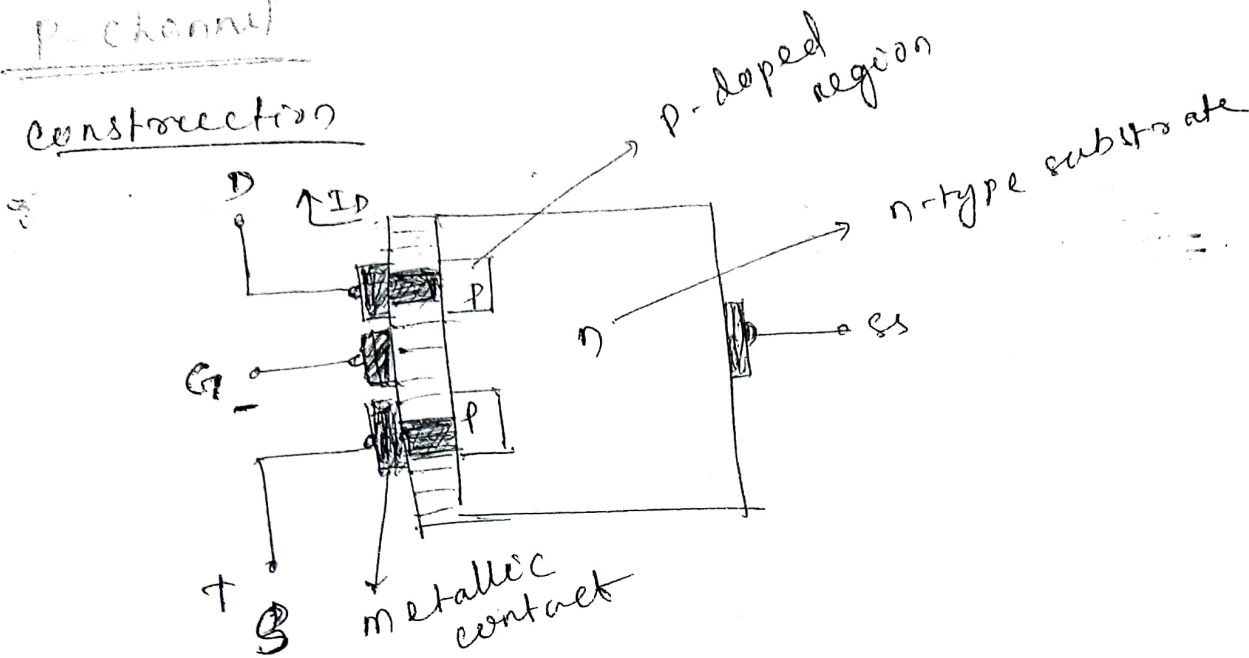 P-Channel
construction
p-doped
region
n-type substrate
D
↑ ID
P
n
SS
G
-
P
+
S
metallic
contact